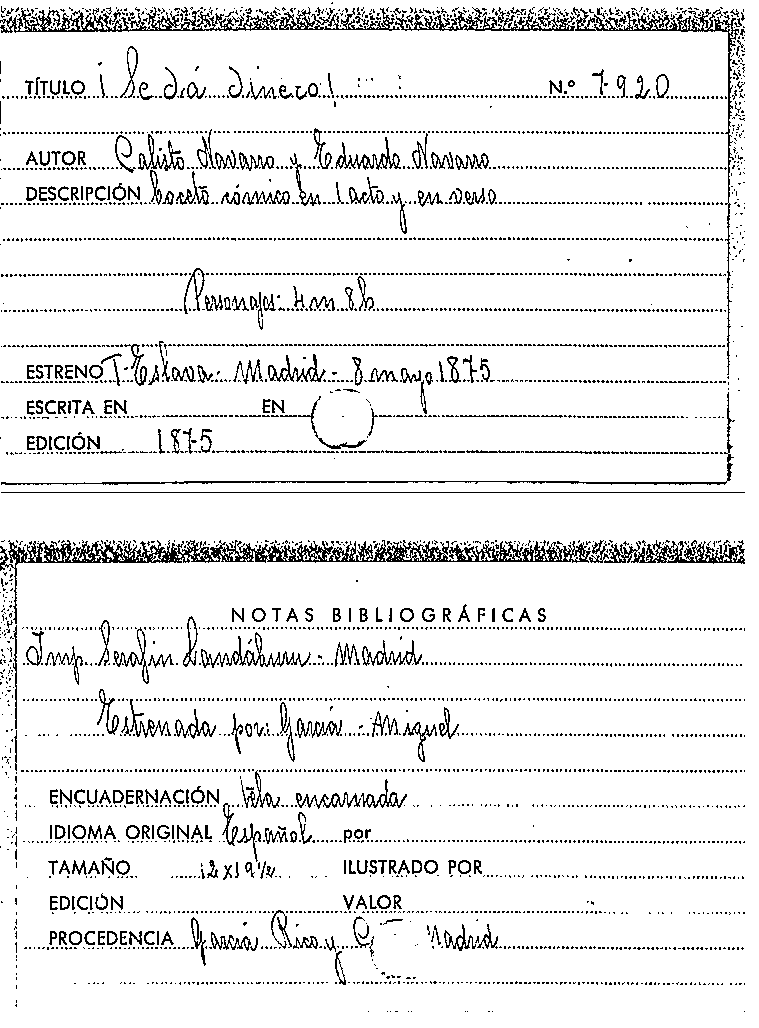 TÍTULO ¡ Se dá dinero! N.º 7-920
AUTOR Calisto Navarro y Eduardo Navarro
DESCRIPCIÓN boceto cómico en 1 acto y en verso
Personajes: 4 m 8 h
ESTRENO T- Eslava- Madrid- 8 mayo 1875
ESCRITA EN EN
EDICIÓN 1875
NOTAS BIBLIOGRÁFICAS
Imp Serafin Landáburu - Madrid
Estrenada por: García - Miguel
ENCUADERNACIÓN tela encarnada
IDIOMA ORIGINAL Español por
TAMAÑO 12 x 19 ½ ILUSTRADO POR
EDICIÓN VALOR
PROCEDENCIA García Rico y Madrid